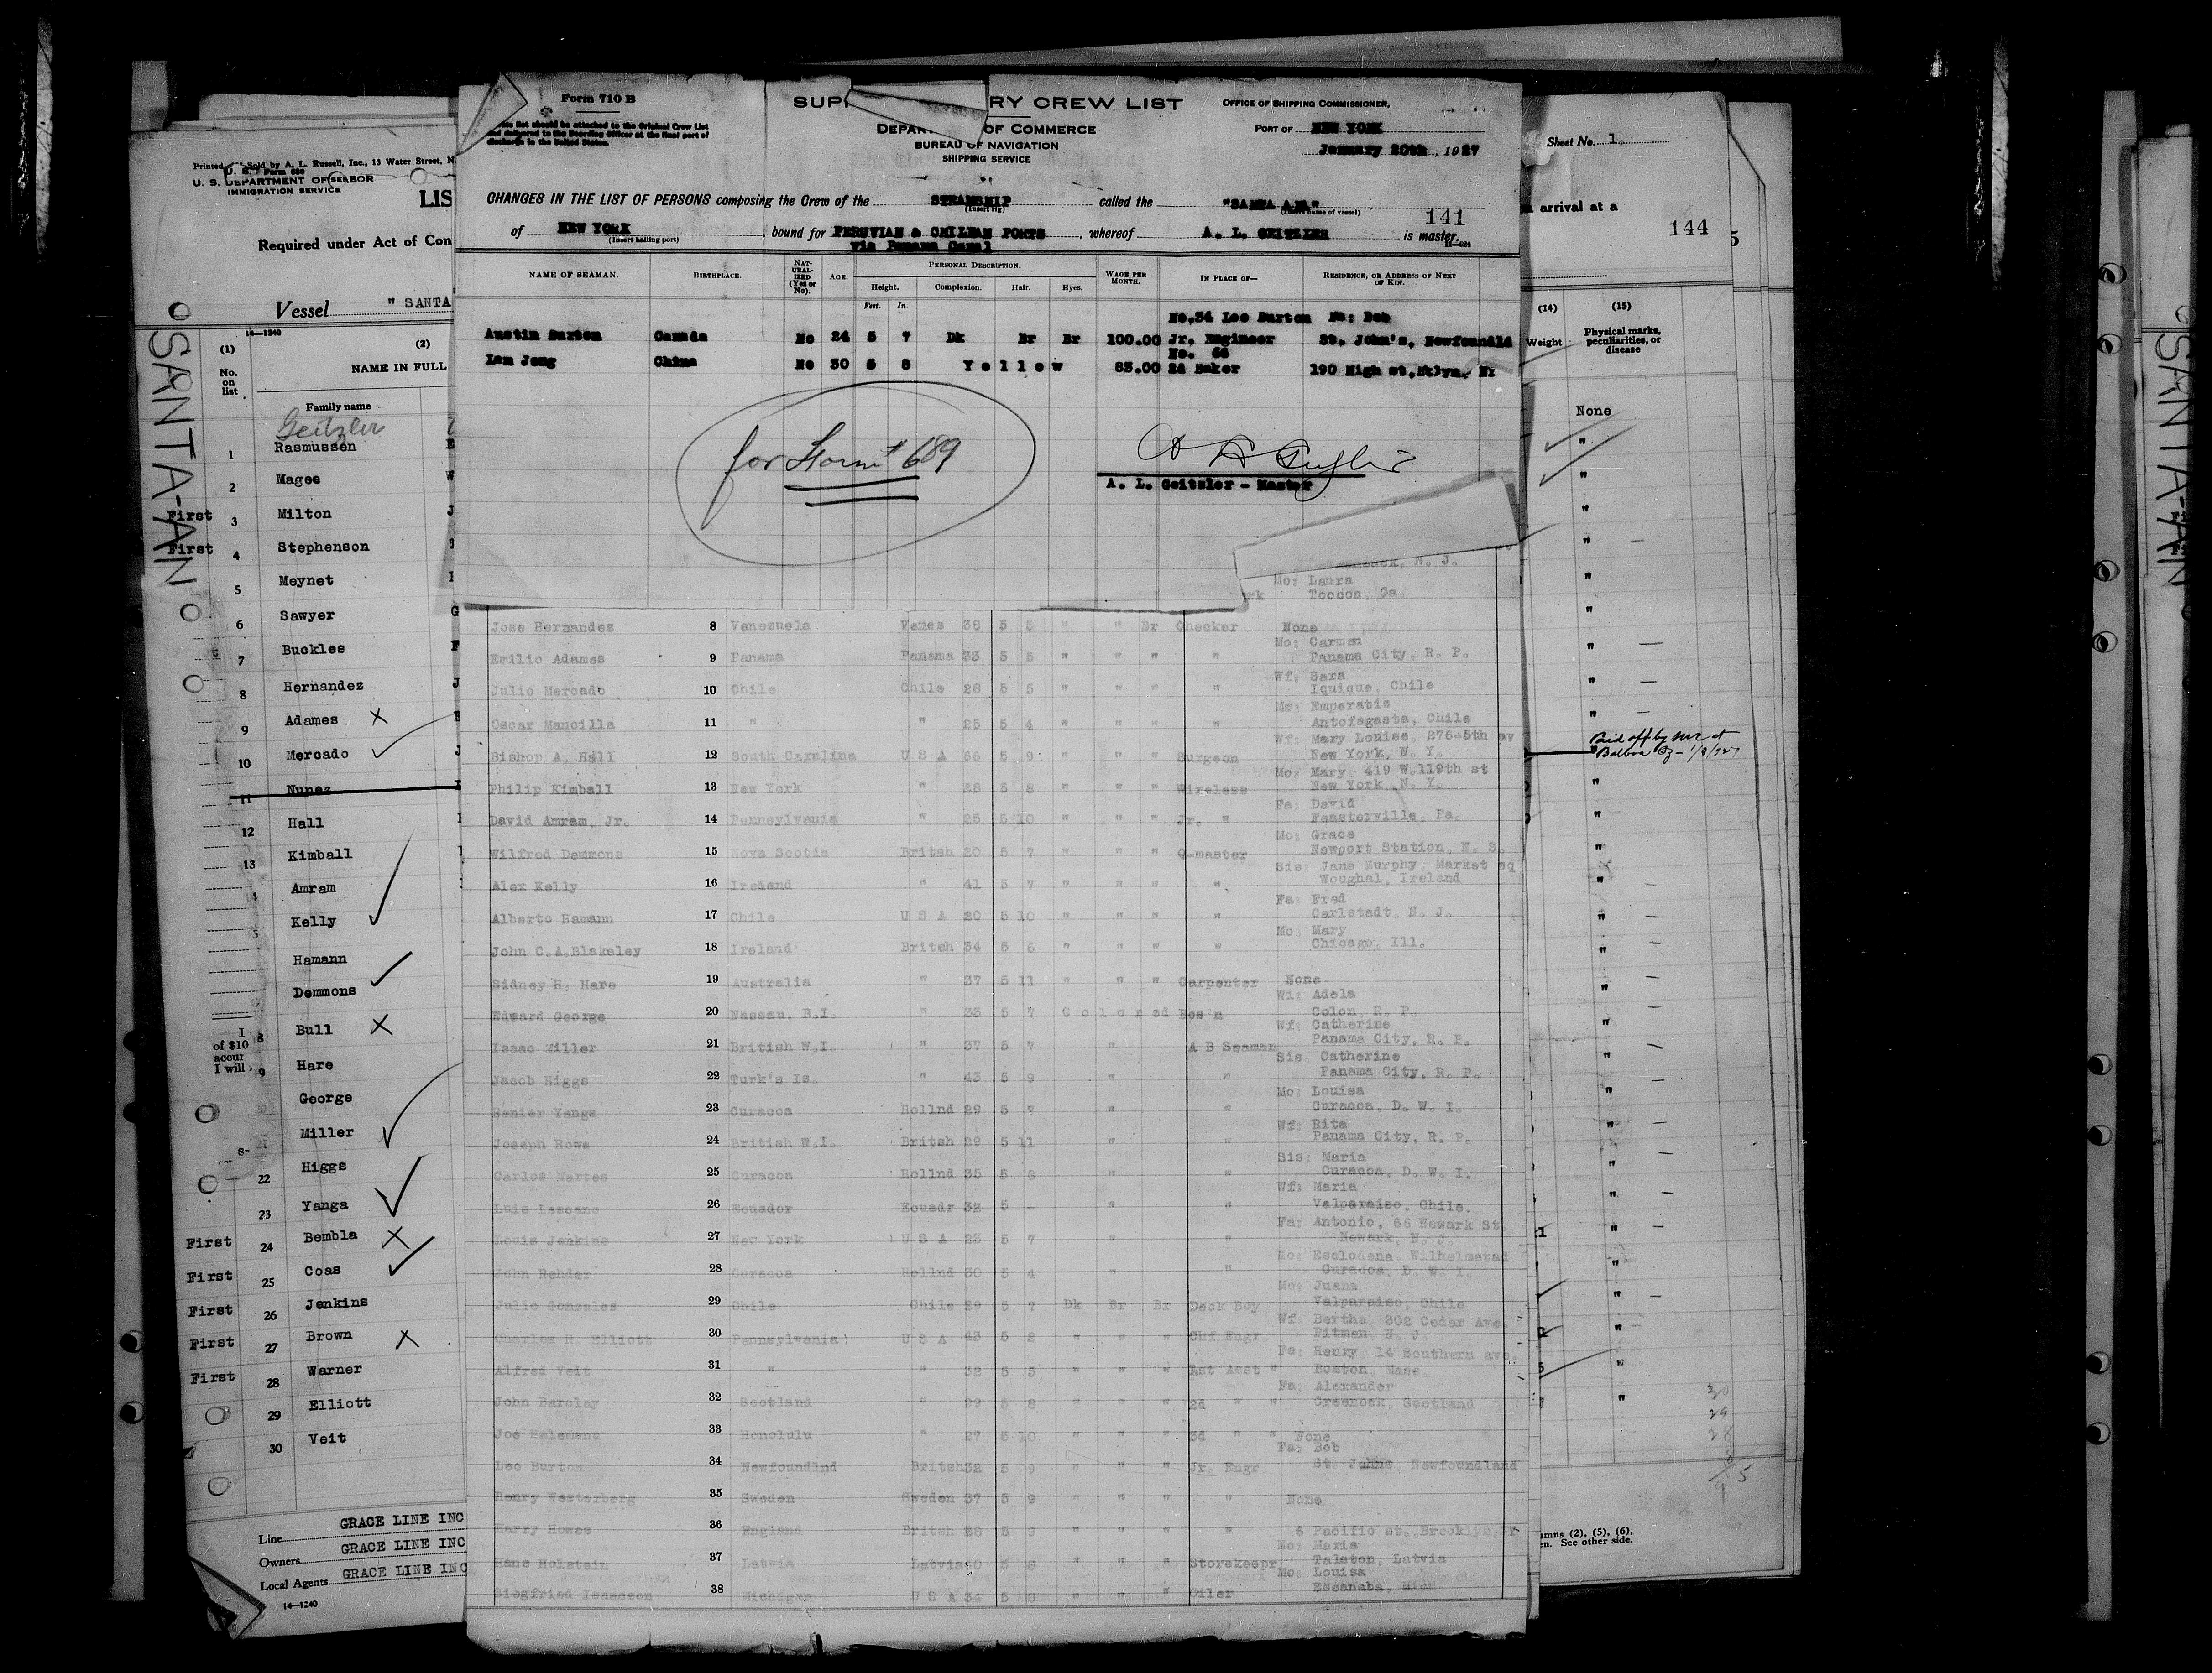 Form 710 B
SUP RY CREW LIST
OFFICE OF SHIPPING COMMISSIONER,
list should be attached to the Original Crew List
and delivered to the Boarding Officer at the final port of
discharge in the United States.
DEPAR OF COMMERCE
BUREAU OF NAVIGATION
SHIPPING SERVICE
PORT OF NEW YORK
January 20th, 1927
CHANGES IN THE LIST OF PERSONS composing the Crew of the STEAMSHIP called the "SANTA ANA"
(Insert rig) (Insert name of vessel) 141
of NEW YORK, bound for PERUVIAN & CHILEAN PORTS, whereof A. L. GEITZLER is master.
(Insert hailing port) via Panama Canal
NAME OF SEAMAN. BIRTHPLACE. NATURALIZED (Yes or No). AGE. PERSONAL DESCRIPTION. WAGE PER MONTH. IN PLACE OF— RESIDENCE, OR ADDRESS OF NEXT OF KIN.
Height. Complexion. Hair. Eyes.
Feet. In.
No.34 Leo Burton Fa: Bob
Austin Burton Canada No 24 5 7 Dk Br Br 100.00 Jr. Engineer St. John's, Newfoundld
No. 66
Lam Jong China No 30 5 8 Yellow 85.00 2d Baker 190 High st, Bklyn, NY
for Form # 689
A. L. Geitzler - Master
N. J.
Mo: Laura
Toccoa, Ga.
Jose Hernandez 8 Venezuela Venes 38 5 5 " " Br Checker None
Mo: Carmen
Emilio Adames 9 Panama Panama 33 5 5 " " " " Panama City, R. P.
Wf: Sara
Julio Mercado 10 Chile Chile 28 5 5 " " " " Iquique, Chile
Mo: Emperatis
Oscar Mancilla 11 " " 25 5 4 " " " " Antofagasta, Chile
Wf: Mary Louise, 276-5th av
Bishop A. Hall 12 South Carolina U S A 66 5 9 " " " Surgeon New York, N. Y.
Mo: Mary 419 W.119th st
Philip Kimball 13 New York " 28 5 8 " " " Wireless New York, N. Y.
Fa: David
David Amram, Jr. 14 Pennsylvania " 25 5 10 " " " Jr. " Feasterville, Pa.
Mo: Grace
Wilfred Demmons 15 Nova Scotia Britsh 20 5 7 " " " Q-master Newport Station, N. S.
Sis: Jane Murphy, Market sq
Alex Kelly 16 Ireland " 41 5 7 " " " " Wooghal, Ireland
Fa: Fred
Alberto Hamann 17 Chile U S A 20 5 10 " " " " Carlstadt, N. J.
Mo: Mary
John C.A.Blakeley 18 Ireland Britsh 34 5 6 " " " " Chicago, Ill.
Sidney H. Hare 19 Australia " 37 5 11 " " " Carpenter None
Wi: Adela
Edward George 20 Nassau, B.I. " 33 5 7 Colored Bos'n Colon, R. P.
Wf: Catherine
Isaac Miller 21 British W.I. " 37 5 7 " A B Seaman Panama City, R. P.
Sis Catherine
Jacob Higgs 22 Turk's Is. " 43 5 9 " " Panama City, R. P.
Mo: Louisa
Senier Yanga 23 Curacoa Hollnd 29 5 7 " " Curacoa, D. W. I.
Wf: Rita
Joseph Rowe 24 British W.I. Britsh 29 5 11 " " Panama City, R. P.
Sis: Maria
Carlos Martes 25 Curacoa Hollnd 35 5 8 " " Curacoa, D. W. I.
Wf: Maria
Luis Lascano 26 Ecuador Ecuadr 32 5 - " " Valparaiso, Chile.
Fa: Antonio, 66 Newark St.
Louis Jenkins 27 New York U S A 23 5 7 " " Newark, N. J.
Mo: Esclodena, Wilhelmstad
John Rehder 28 Curacoa Hollnd 30 5 4 " " Curacoa, D. W. I.
Mo: Juana
Julio Gonzales 29 Chile Chile 29 5 7 Dk Br Br Deck Boy Valparaiso, Chile
Wf: Bertha, 302 Cedar Ave.
Charles H. Elliott 30 Pennsylvania U S A 43 5 8 " " " Chf Engr Pitman, N. J.
Fa: Henry, 14 Southern ave.
Alfred Veit 31 " " 32 5 5 " " " 1st Asst " Boston, Mass.
Fa: Alexander
John Barclay 32 Scotland " 5 8 " " " 2d " " Greenock, Scotland
Joe 33 Honolulu " 27 5 10 " " " 3d " " None
Fa: Bob
Leo Burton 34 Newfoundlnd Britsh 32 5 9 " " " Jr. Engr St. Johns, Newfoundland
Henry Westerberg 35 Sweden Sweden 37 5 9 " " " " None
Harry Howes 36 England Britsh 28 5 " " " " 6 Pacific st., Brooklyn,
Mo: Maria
Hans Holstein 37 Latvia Latvia 5 8 " " " Storekeepr Talsten, Latvia
Mo: Louisa
Siegfried Isaacson 38 Michigan U S A 34 5 8 " " " Oiler Escanaba, Mich
Printed Sold by A. L. Russell, Inc., 13 Water Street, N
U. S. Form 680
U. S. DEPARTMENT OF LABOR
IMMIGRATION SERVICE
LIS
Required under Act of Con
Vessel " SANTA
14—1240
(1) (2)
No. on list NAME IN FULL
Family name
Geitzler
1 Rasmussen
2 Magee
First 3 Milton
First 4 Stephenson
5 Meynet
6 Sawyer
7 Buckles
8 Hernandez
9 Adames X
10 Mercado
11 Nunez
12 Hall
13 Kimball
Amram
Kelly
Hamann
Demmons
Bull X
Hare
George
Miller
22 Higgs
23 Yanga
First 24 Bembla X
First 25 Coas
First 26 Jenkins
First 27 Brown X
First 28 Warner
29 Elliott
30 Veit
I
of $10
accur
I will
Line GRACE LINE INC
Owners GRACE LINE INC
Local Agents GRACE LINE INC
14—1240
SANTA-AN
Sheet No. 1.
arrival at a
144
5
(14) (15)
Weight Physical marks, peculiarities, or disease
None
Paid off by me at
Balboa CZ -
30
29
28
umns (2), (5), (6),
en. See other side.
SANTA-AN